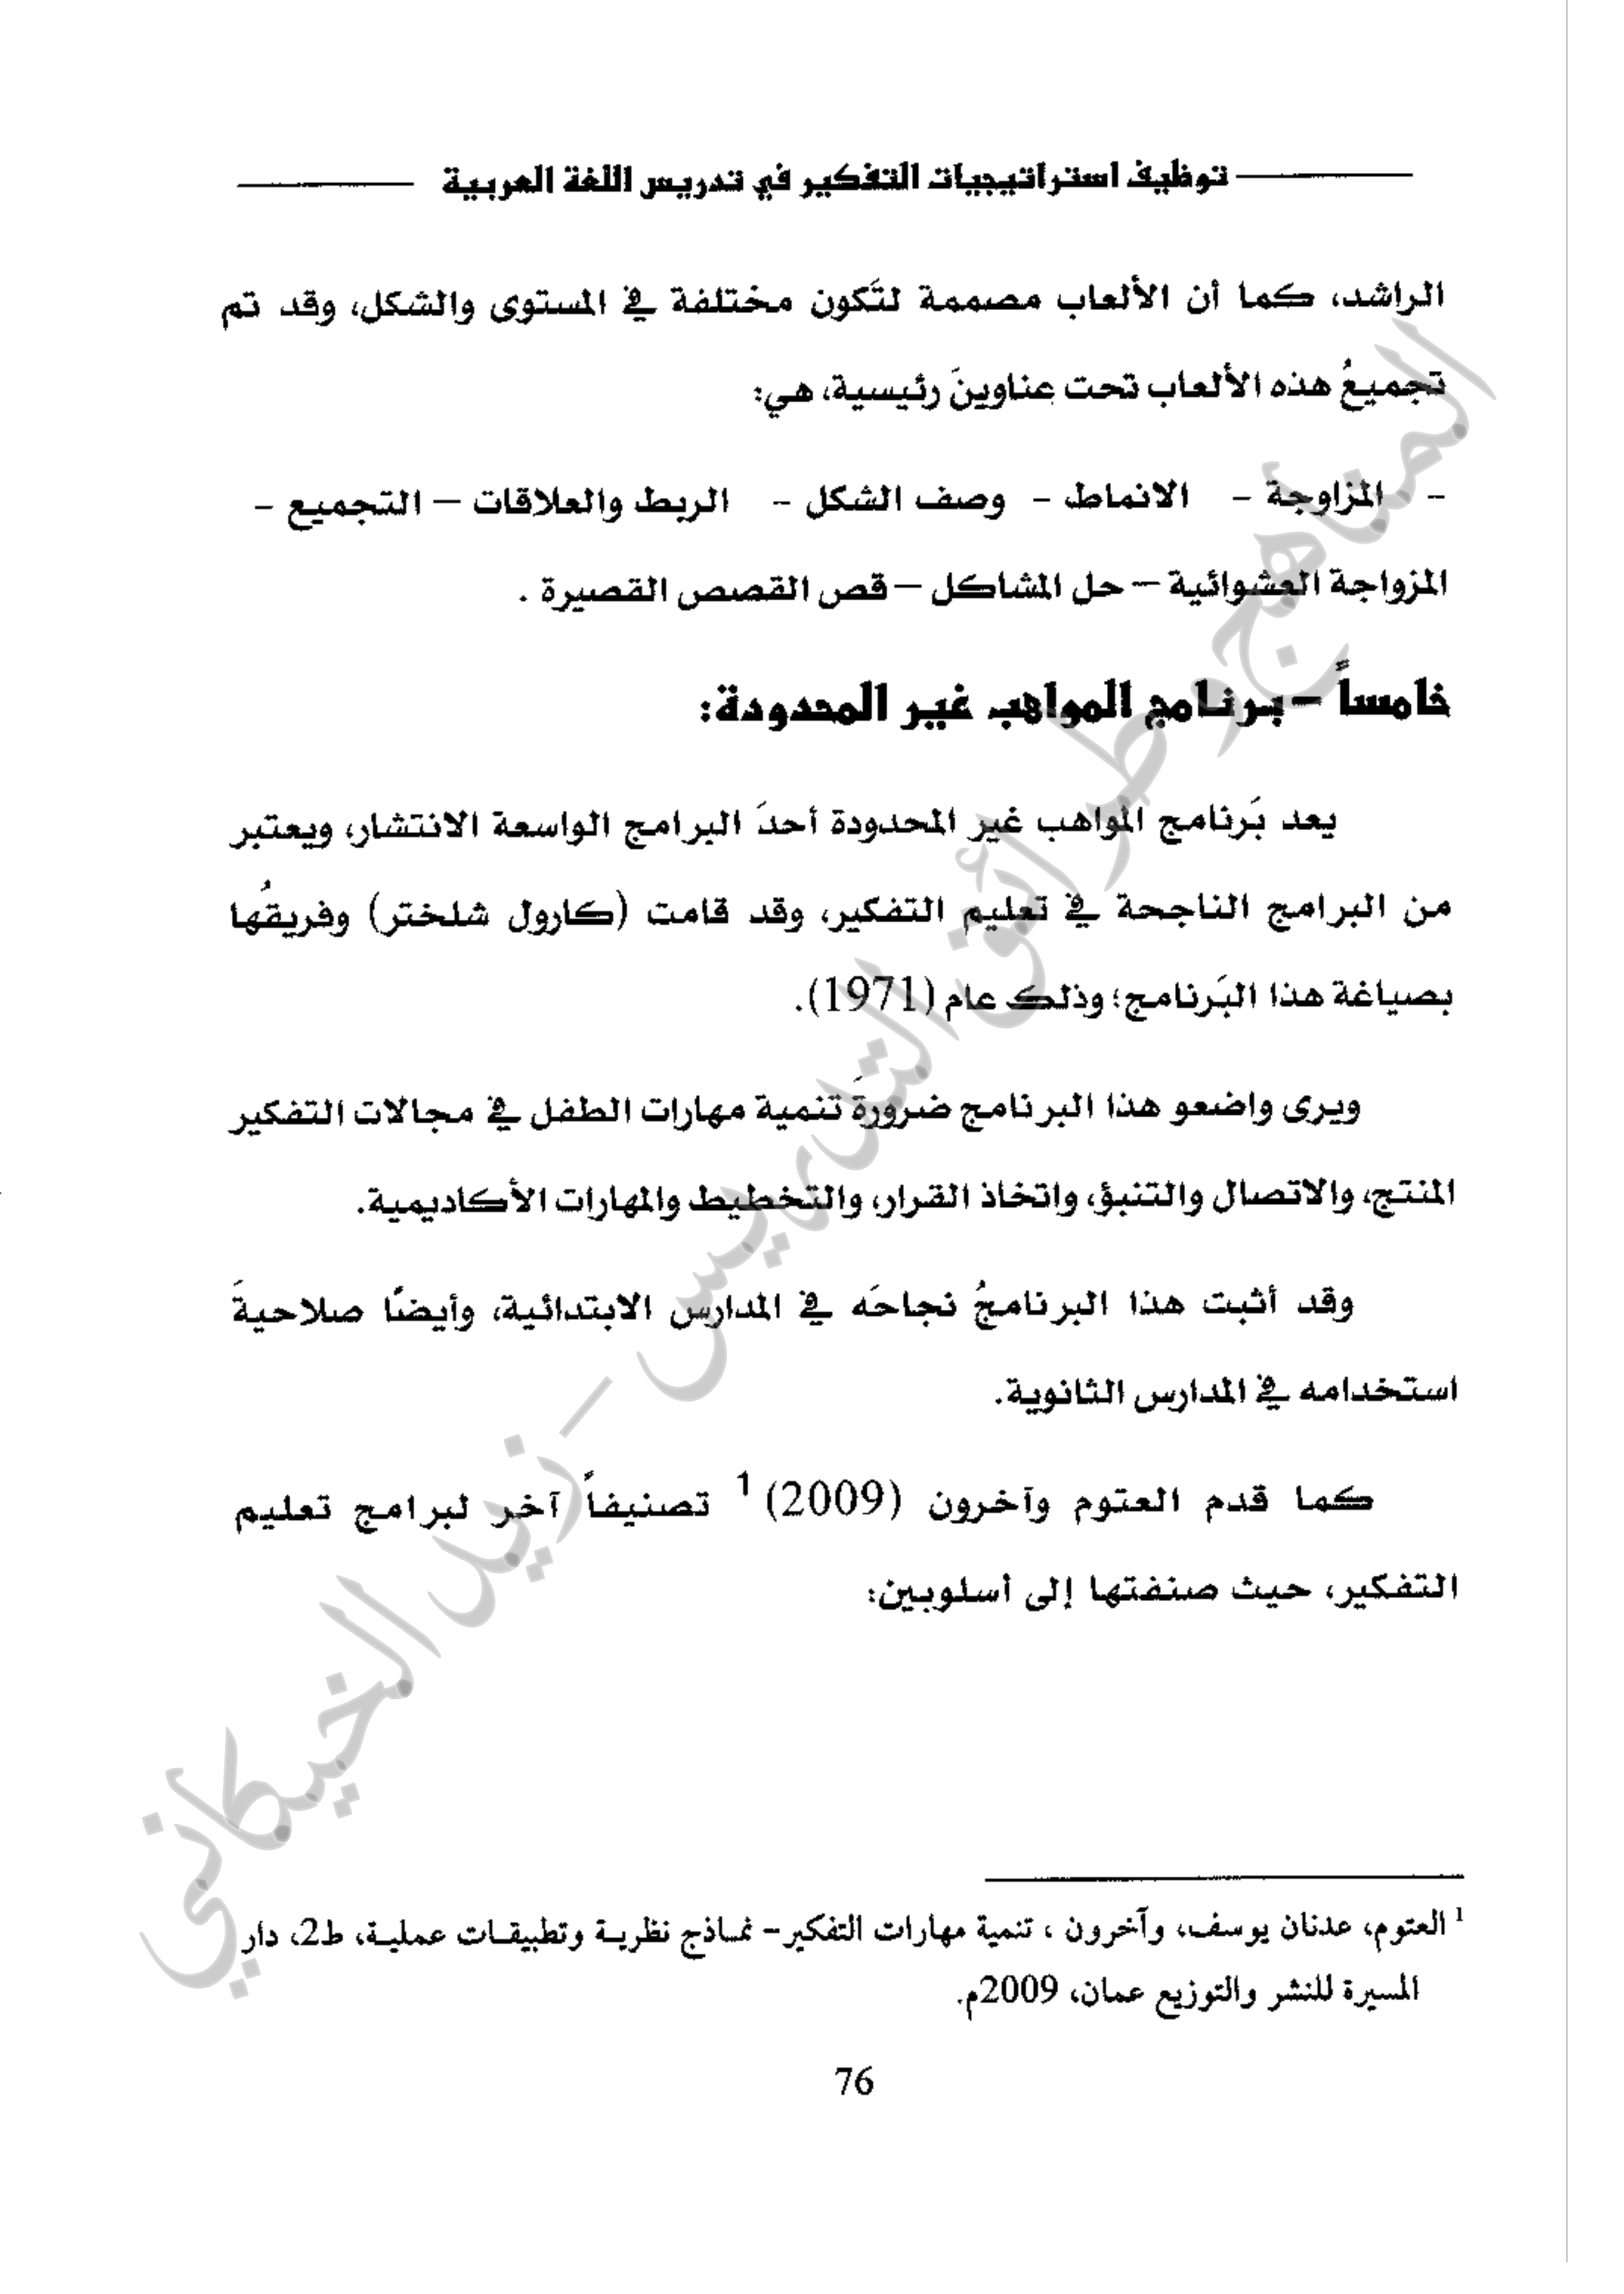 توظيف استراتيجيات التفكير في تدريس اللغة العربية
الراشد، كما أن الألعاب مصممة لتَكون مختلفة في المستوى والشكل، وقد تم
تجميعُ هذه الألعاب تحت عناوينَ رئيسية، هي:
- المزاوجة - الانماط - وصف الشكل - الربط والعلاقات – التجميع -
المزواجة العشوائية – حل المشاكل – قص القصص القصيرة .
خامساً – برنامج المواهب غير المحدودة:
يعد بَرنامج المواهب غير المحدودة أحدَ البرامج الواسعة الانتشار، ويعتبر
من البرامج الناجحة في تعليم التفكير، وقد قامت (كارول شلختر) وفريقُها
بصياغة هذا البَرنامج؛ وذلك عام (1971).
ويرى واضعو هذا البرنامج ضرورةَ تنمية مهارات الطفل في مجالات التفكير
المنتج، والاتصال والتنبؤ، واتخاذ القرار، والتخطيط والمهارات الأكاديمية.
وقد أثبت هذا البرنامجُ نجاحَه في المدارس الابتدائية، وأيضًا صلاحيةَ
استخدامه في المدارس الثانوية.
كما قدم العتوم وآخرون (2009) 1 تصنيفاً آخر لبرامج تعليم
التفكير، حيث صنفتها إلى أسلوبين:
1 العتوم، عدنان يوسف، وآخرون ، تنمية مهارات التفكير- نماذج نظرية وتطبيقات عملية، ط2، دار
المسيرة للنشر والتوزيع عمان، 2009م.
76
المناهج وطرائق التدريس - زيد الخيكاني